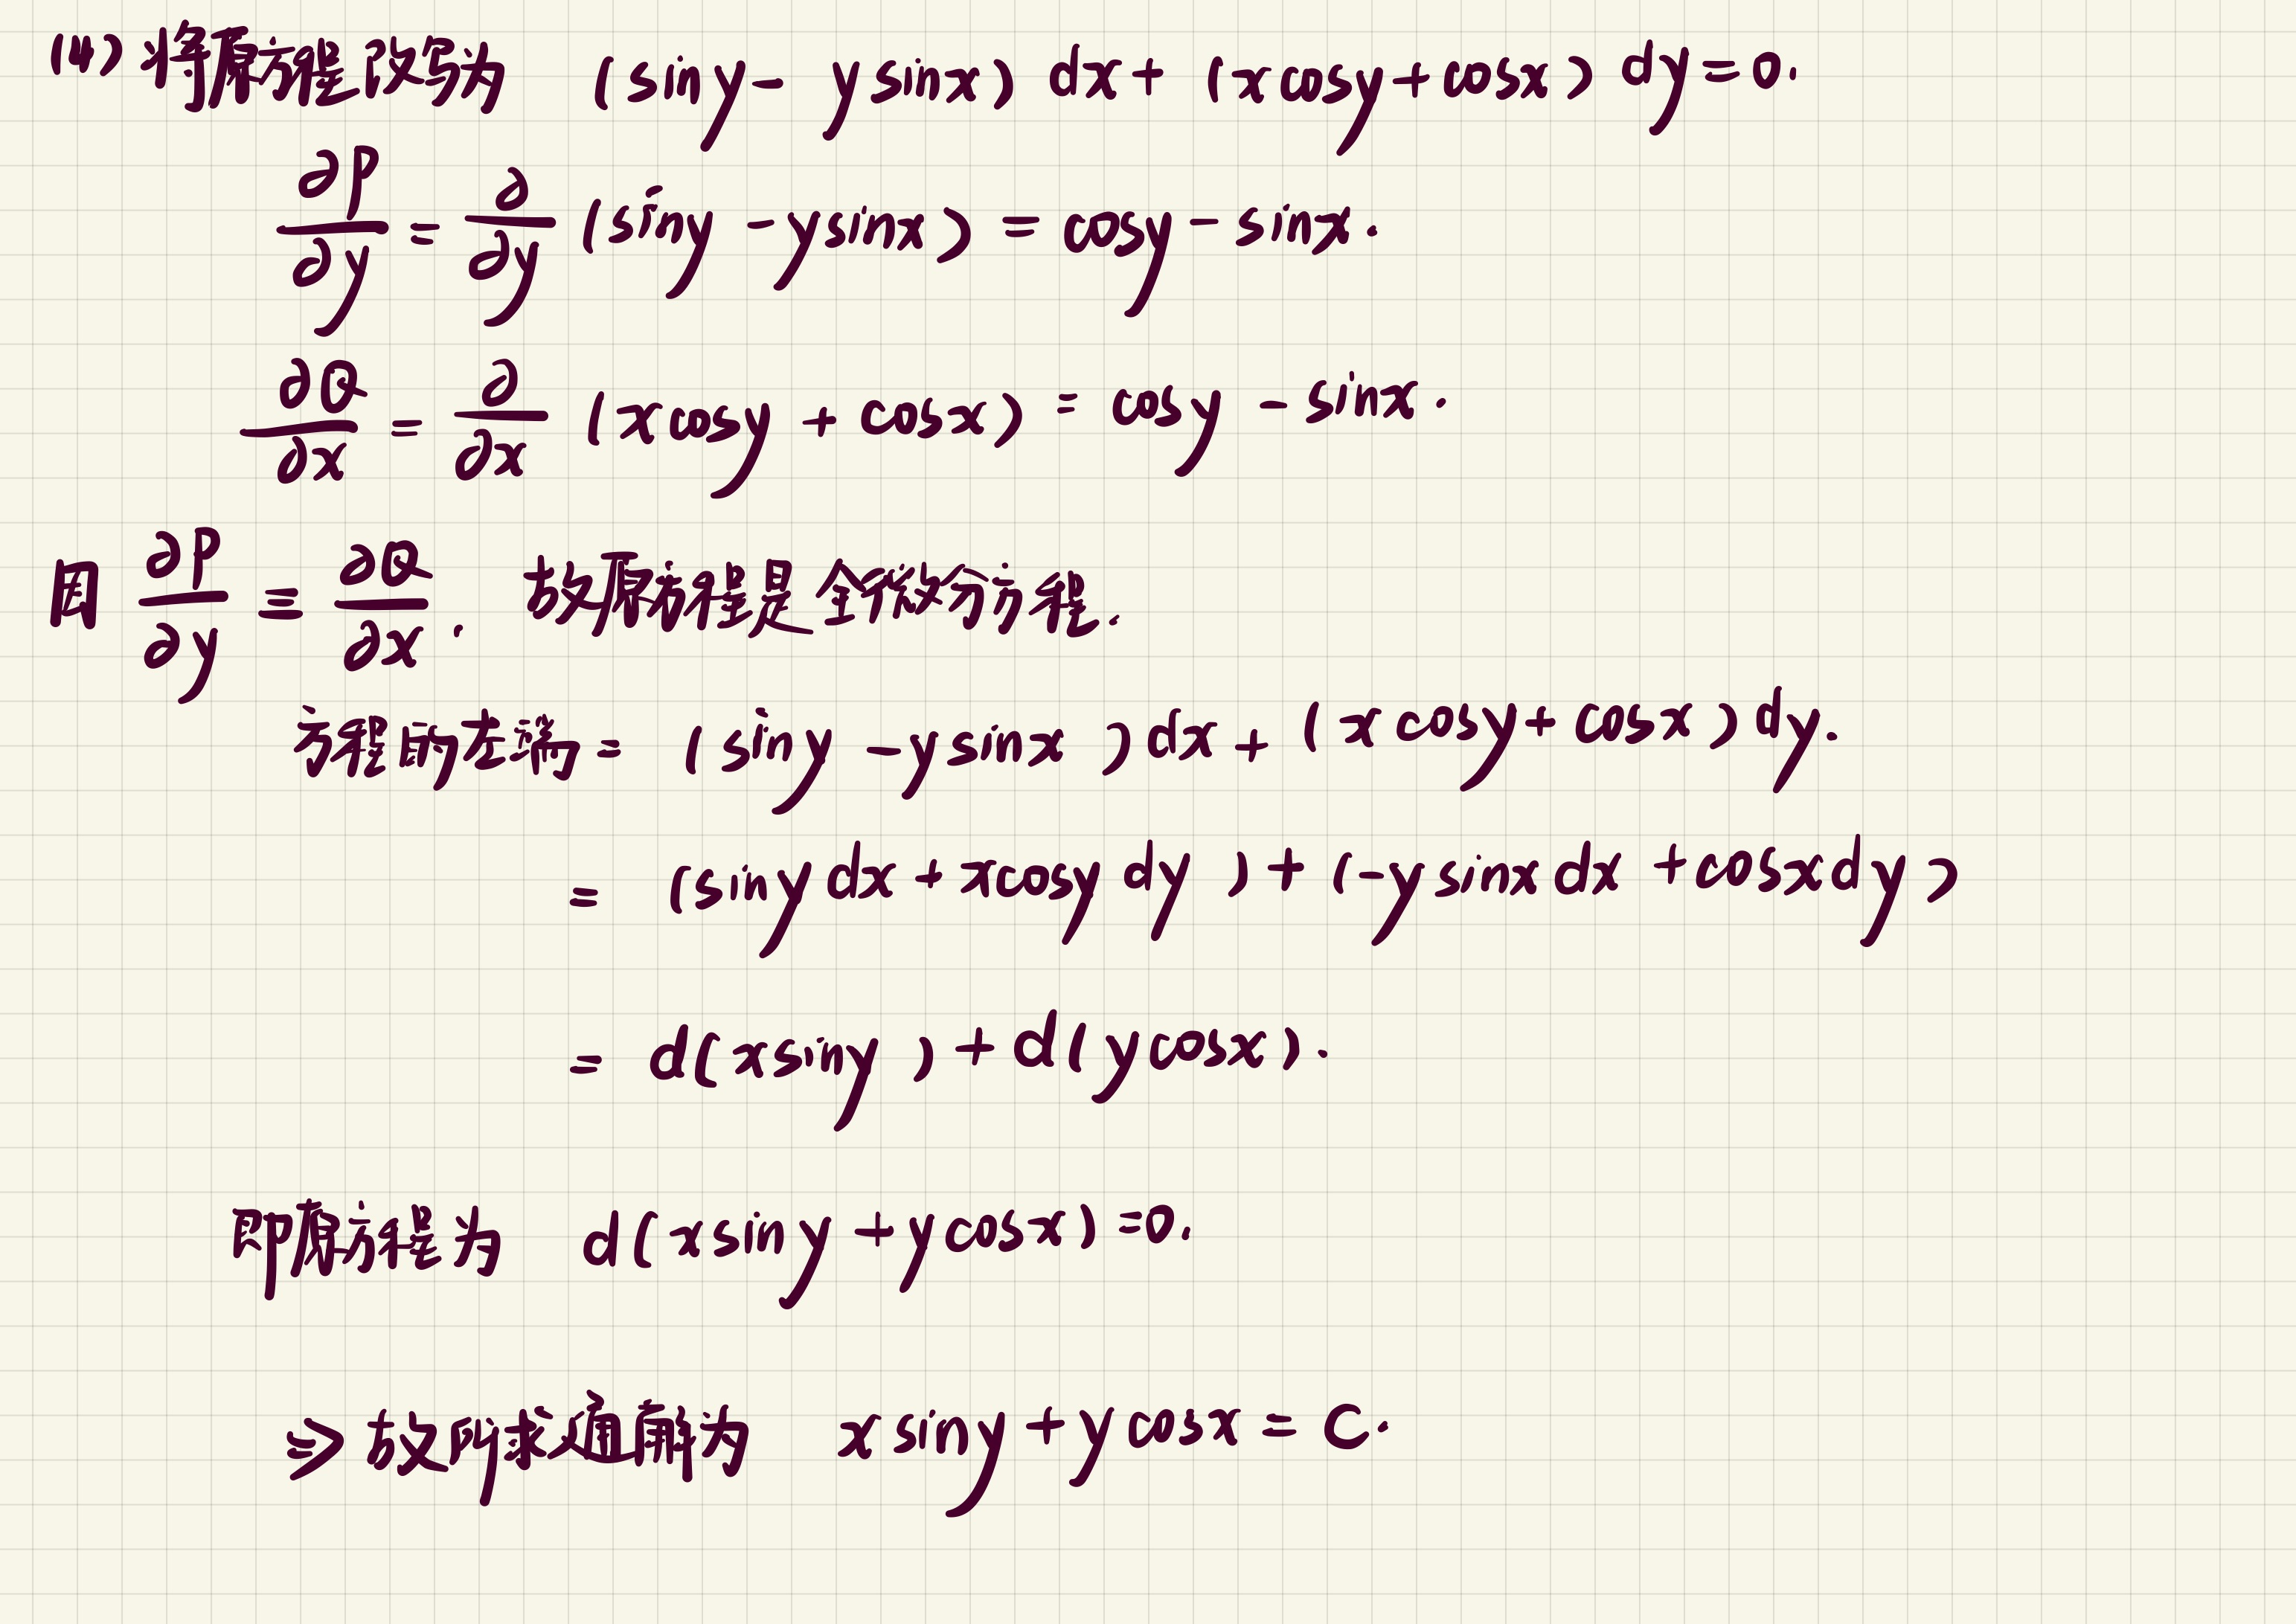 (4) 将原方程改写为 (siny - ysinx) dx + (xcosy + cosx) dy = 0.
∂P/∂y = ∂/∂y (siny - ysinx) = cosy - sinx.
∂Q/∂x = ∂/∂x (xcosy + cosx) = cosy - sinx.
因 ∂P/∂y ≡ ∂Q/∂x. 故原方程是全微分方程.
方程的左端 = (siny - ysinx) dx + (xcosy + cosx) dy.
= (siny dx + xcosy dy) + (-ysinx dx + cosx dy)
= d(xsiny) + d(ycosx).
即原方程为 d(xsiny + ycosx) = 0.
⇒ 故所求通解为 xsiny + ycosx = C.